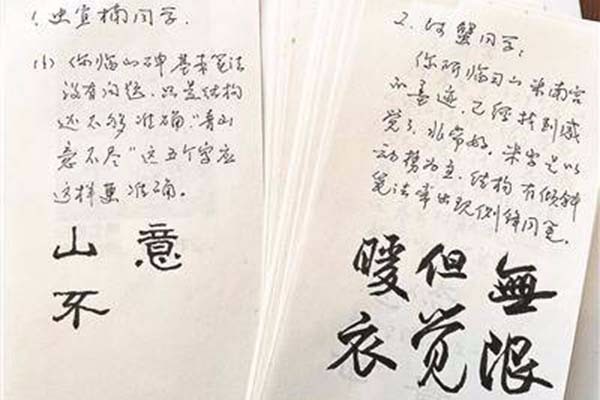 1. 宜楠同学.
(1) 你临的碑基本笔法
没有问题.只是结构
还不够准确."青山
意不尽"这五个字应
这样更准确。
山 意
不
2. 何蟹同学:
你所临习的米南宫
墨迹,已经找到感
觉了,非常好,米字是以
动势为主,结构有倾斜
笔法常出现侧锋用笔。
暖但無
衣觉限